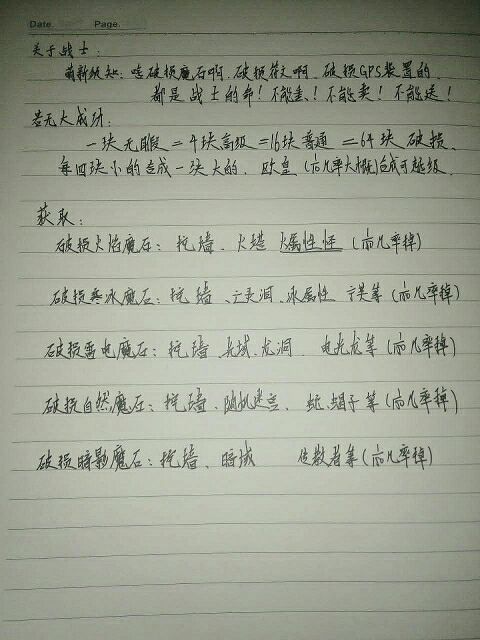 Date. Page.
关于战士:
萌新须知:啥破损魔石啊.破损符文啊.破损GPS装置的.
都是战士的命!不能丢!不能卖!不能送!
若无大成功.
一块无瑕=4块高级=16块普通=64块破损.
每四块小的合成一块大的.欧皇(向几率大概)合成可越级.
获取:
破损火焰魔石:挖墙、火塔 火属性怪(向几率掉)
破损寒冰魔石:挖墙、亡灵洞、冰属性 亡灵等(向几率掉)
破损雷电魔石:挖墙 光域.龙洞、电光龙等(向几率掉)
破损自然魔石:挖墙、随机迷宫、蛇.蝎子等(向几率掉)
破损暗影魔石:挖墙、暗域 位散者等(向几率掉)